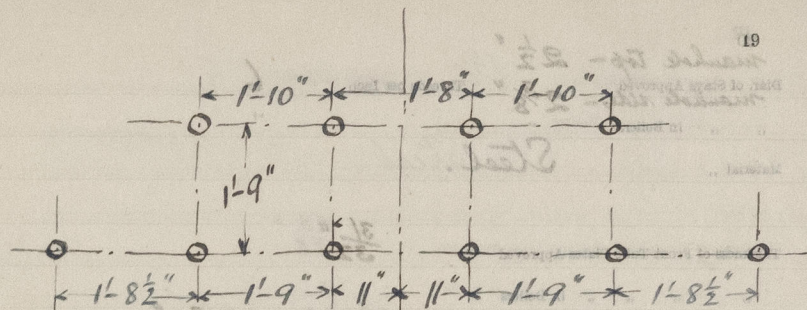 19
1'-10" 1'-8" 1'-10"
1'-9"
1'-8½" 1'-9" 11" 11" 1'-9" 1'-8½"